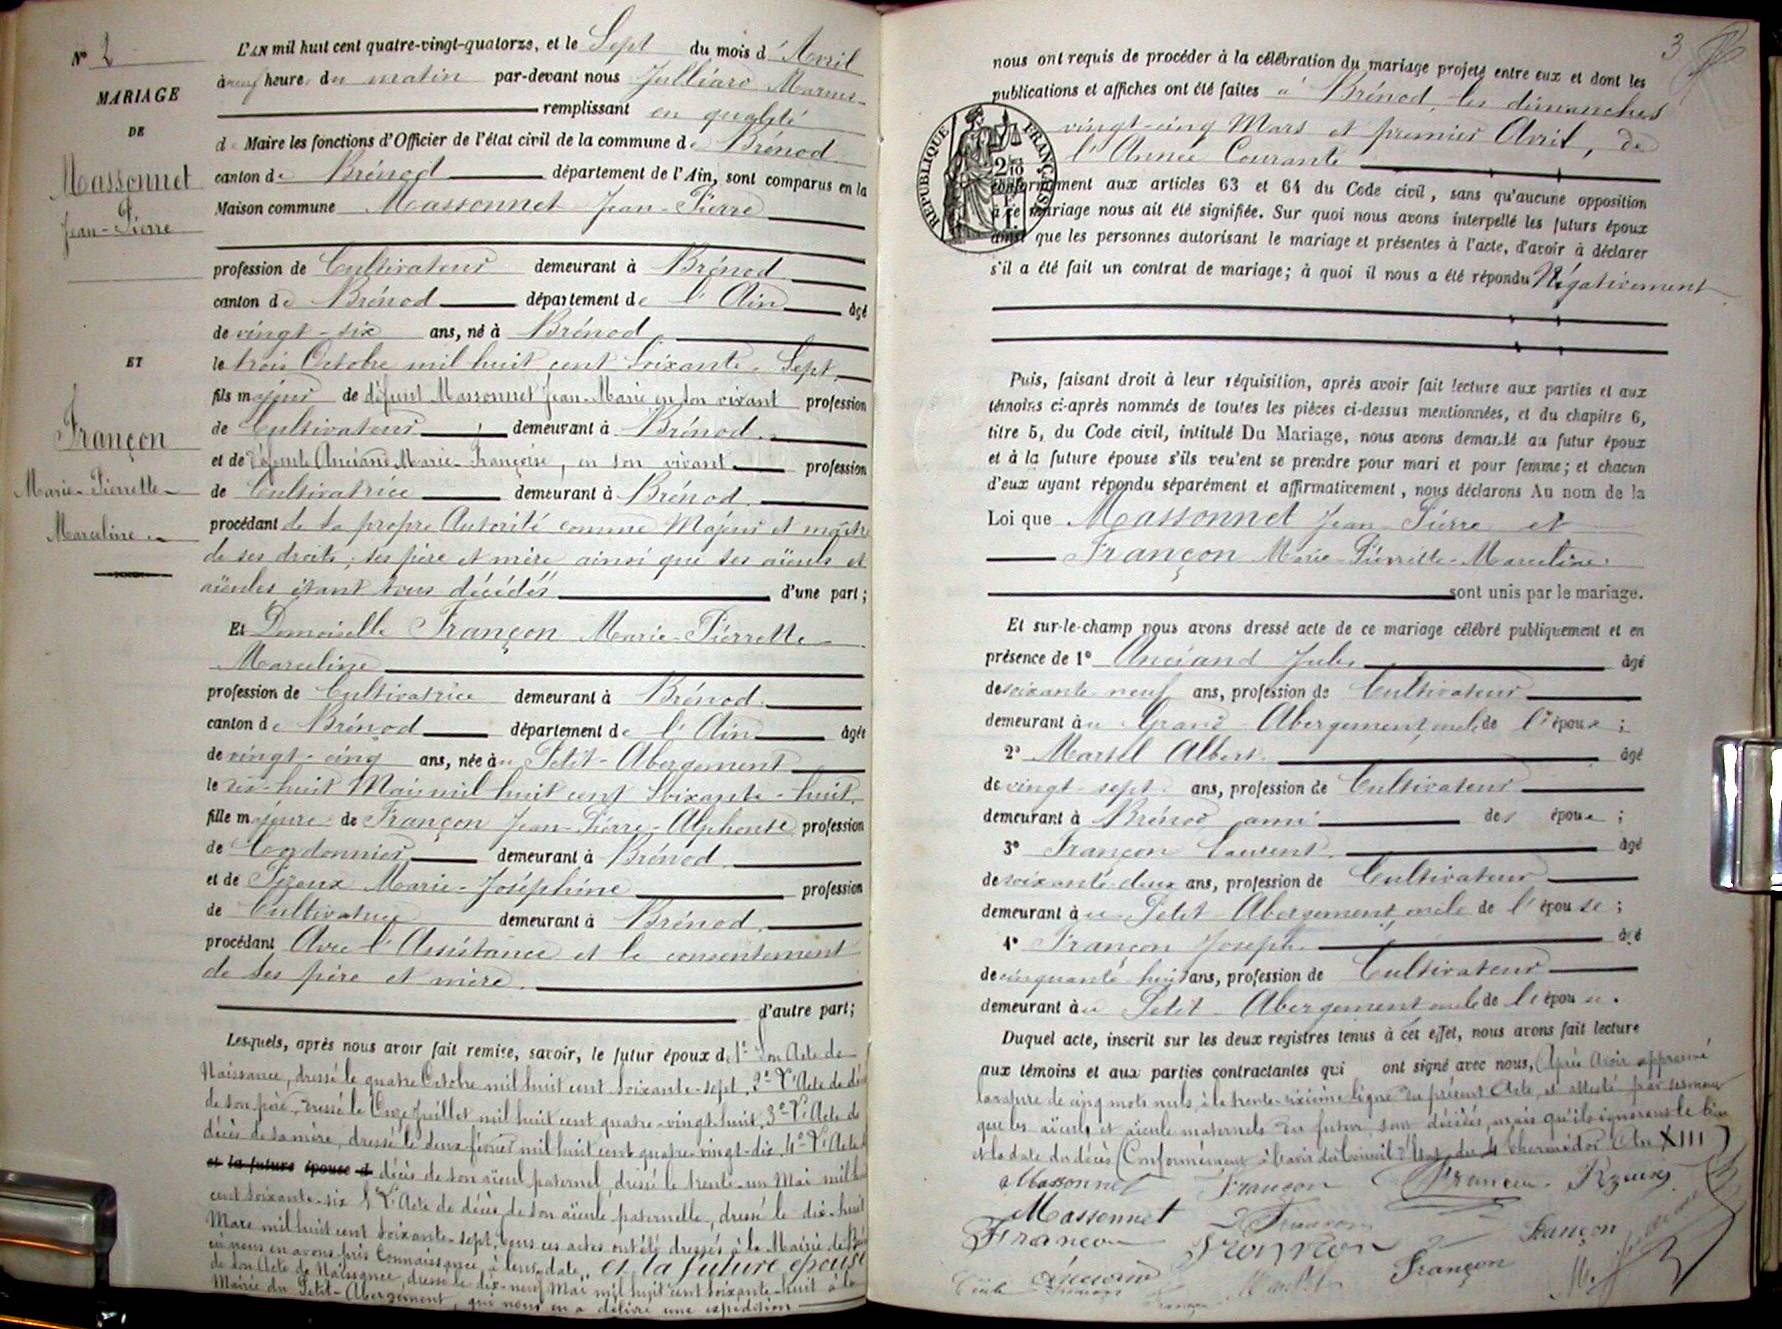 N° 2
MARIAGE
DE
Massonnet
Jean-Pierre
ET
Françon
Marie-Pierrette
Marceline
L'AN mil huit cent quatre-vingt-quatorze, et le Sept du mois d'Avril
à neuf heures du matin par-devant nous Julliard Marius
remplissant en qualité
de Maire les fonctions d'Officier de l'état civil de la commune de Brénod
canton de Brénod département de l'Ain, sont comparus en la
Maison commune Massonnet Jean-Pierre
profession de Cultivateur demeurant à Brénod
canton de Brénod département de l'Ain âgé
de vingt-six ans, né à Brénod
le trois Octobre mil huit cent soixante-Sept
fils majeur de défunt Massonnet Jean-Marie en son vivant profession
de Cultivateur demeurant à Brénod
et de défunte Anciand Marie-Françoise, en son vivant profession
de Cultivatrice demeurant à Brénod
procédant de sa propre Autorité comme Majeur et maître
de ses droits, ses père et mère ainsi que ses aïeuls et
aïeules étant tous décédés d'une part;
Et Demoiselle Françon Marie-Pierrette
Marceline
profession de Cultivatrice demeurant à Brénod
canton de Brénod département de l'Ain âgée
de vingt-cinq ans, née au Petit-Abergement
le dix-huit Mai mil huit cent soixante-huit
fille majeure de Françon Jean-Pierre-Alphonse profession
de Cordonnier demeurant à Brénod
et de Pizoux Marie-Joséphine profession
de Cultivatrice demeurant à Brénod
procédant Avec l'Assistance et le consentement
de ses père et mère
d'autre part;
Lesquels, après nous avoir fait remise, savoir, le futur époux de 1° Son Acte de
Naissance, dressé le quatre Octobre mil huit cent soixante-sept. 2° L'Acte de décè
de son père, dressé le Onze Juillet mil huit cent quatre-vingt-huit. 3° L'Acte de
décès de sa mère, dressé le deux février mil huit cent quatre-vingt-dix. 4° L'Acte d
et la future épouse d décès de son aïeul paternel, dressé le trente-un Mai mil hu
cent soixante-six 5° L'Acte de décès de son aïeule paternelle, dressé le dix-huit
Mars mil huit cent soixante-sept. Tous ces actes ont été dressés à la Mairie de Bré
où nous en avons pris Connaissance à leur date, et la future épouse
de son Acte de Naissance, dressé le dix-neuf Mai mil huit cent soixante-huit à la
Mairie du Petit-Abergement, qui nous en a délivré une expédition
3
nous ont requis de procéder à la célébration du mariage projeté entre eux et dont les
publications et affiches ont été faites à Brénod, les dimanches
vingt-cinq Mars et premier Avril, de
l'Année Courante
RÉPUBLIQUE FRANÇAISE
conformément aux articles 63 et 64 du Code civil, sans qu'aucune opposition
à ce mariage nous ait été signifiée. Sur quoi nous avons interpellé les futurs époux
ainsi que les personnes autorisant le mariage et présentes à l'acte, d'avoir à déclarer
s'il a été fait un contrat de mariage; à quoi il nous a été répondu Négativement
Puis, faisant droit à leur réquisition, après avoir fait lecture aux parties et aux
témoins ci-après nommés de toutes les pièces ci-dessus mentionnées, et du chapitre 6,
titre 5, du Code civil, intitulé Du Mariage, nous avons demandé au futur époux
et à la future épouse s'ils veulent se prendre pour mari et pour femme; et chacun
d'eux ayant répondu séparément et affirmativement, nous déclarons Au nom de la
Loi que Massonnet Jean-Pierre et
Françon Marie-Pierrette-Marceline
sont unis par le mariage.
Et sur-le-champ nous avons dressé acte de ce mariage célébré publiquement et en
présence de 1° Anciand Jules âgé
de soixante-neuf ans, profession de Cultivateur
demeurant au Grand-Abergement, oncle de l'époux;
2° Martel Albert âgé
de vingt-sept ans, profession de Cultivateur
demeurant à Brénod ami des époux;
3° Françon Laurent âgé
de soixante-deux ans, profession de Cultivateur
demeurant au Petit-Abergement oncle de l'épouse;
4° Françon Joseph âgé
de cinquante-huit ans, profession de Cultivateur
demeurant au Petit-Abergement oncle de l'épouse.
Duquel acte, inscrit sur les deux registres tenus à cet effet, nous avons fait lecture
aux témoins et aux parties contractantes qui ont signé avec nous, (Après Avoir approuvé
la rature de cinq mots nuls, à la trente-sixième ligne du présent Acte, et attesté
que les aïeuls et aïeule maternels du futur, sont décédés, mais qu'ils ignorent le lieu
et la date du décès (Conformément à l'avis du Conseil d'Etat du 4 thermidor An XIII)
Massonnet Françon Françon Pizoux
Massonnet Françon Françon
Françon Françon
Anciand Françon